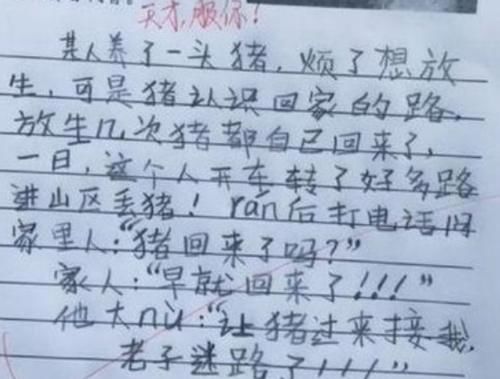 天才,服你!
某人养了一头猪,烦了想放
生,可是猪认识回家的路,
放生几次猪都自己回来了,
一日,这个人开车转了好多路
进山区丢猪!rán后打电话问
家里人:“猪回来了吗?”
家人:“早就回来了!!!”
他大nù:“让猪过来接我,
老子迷路了!!!”